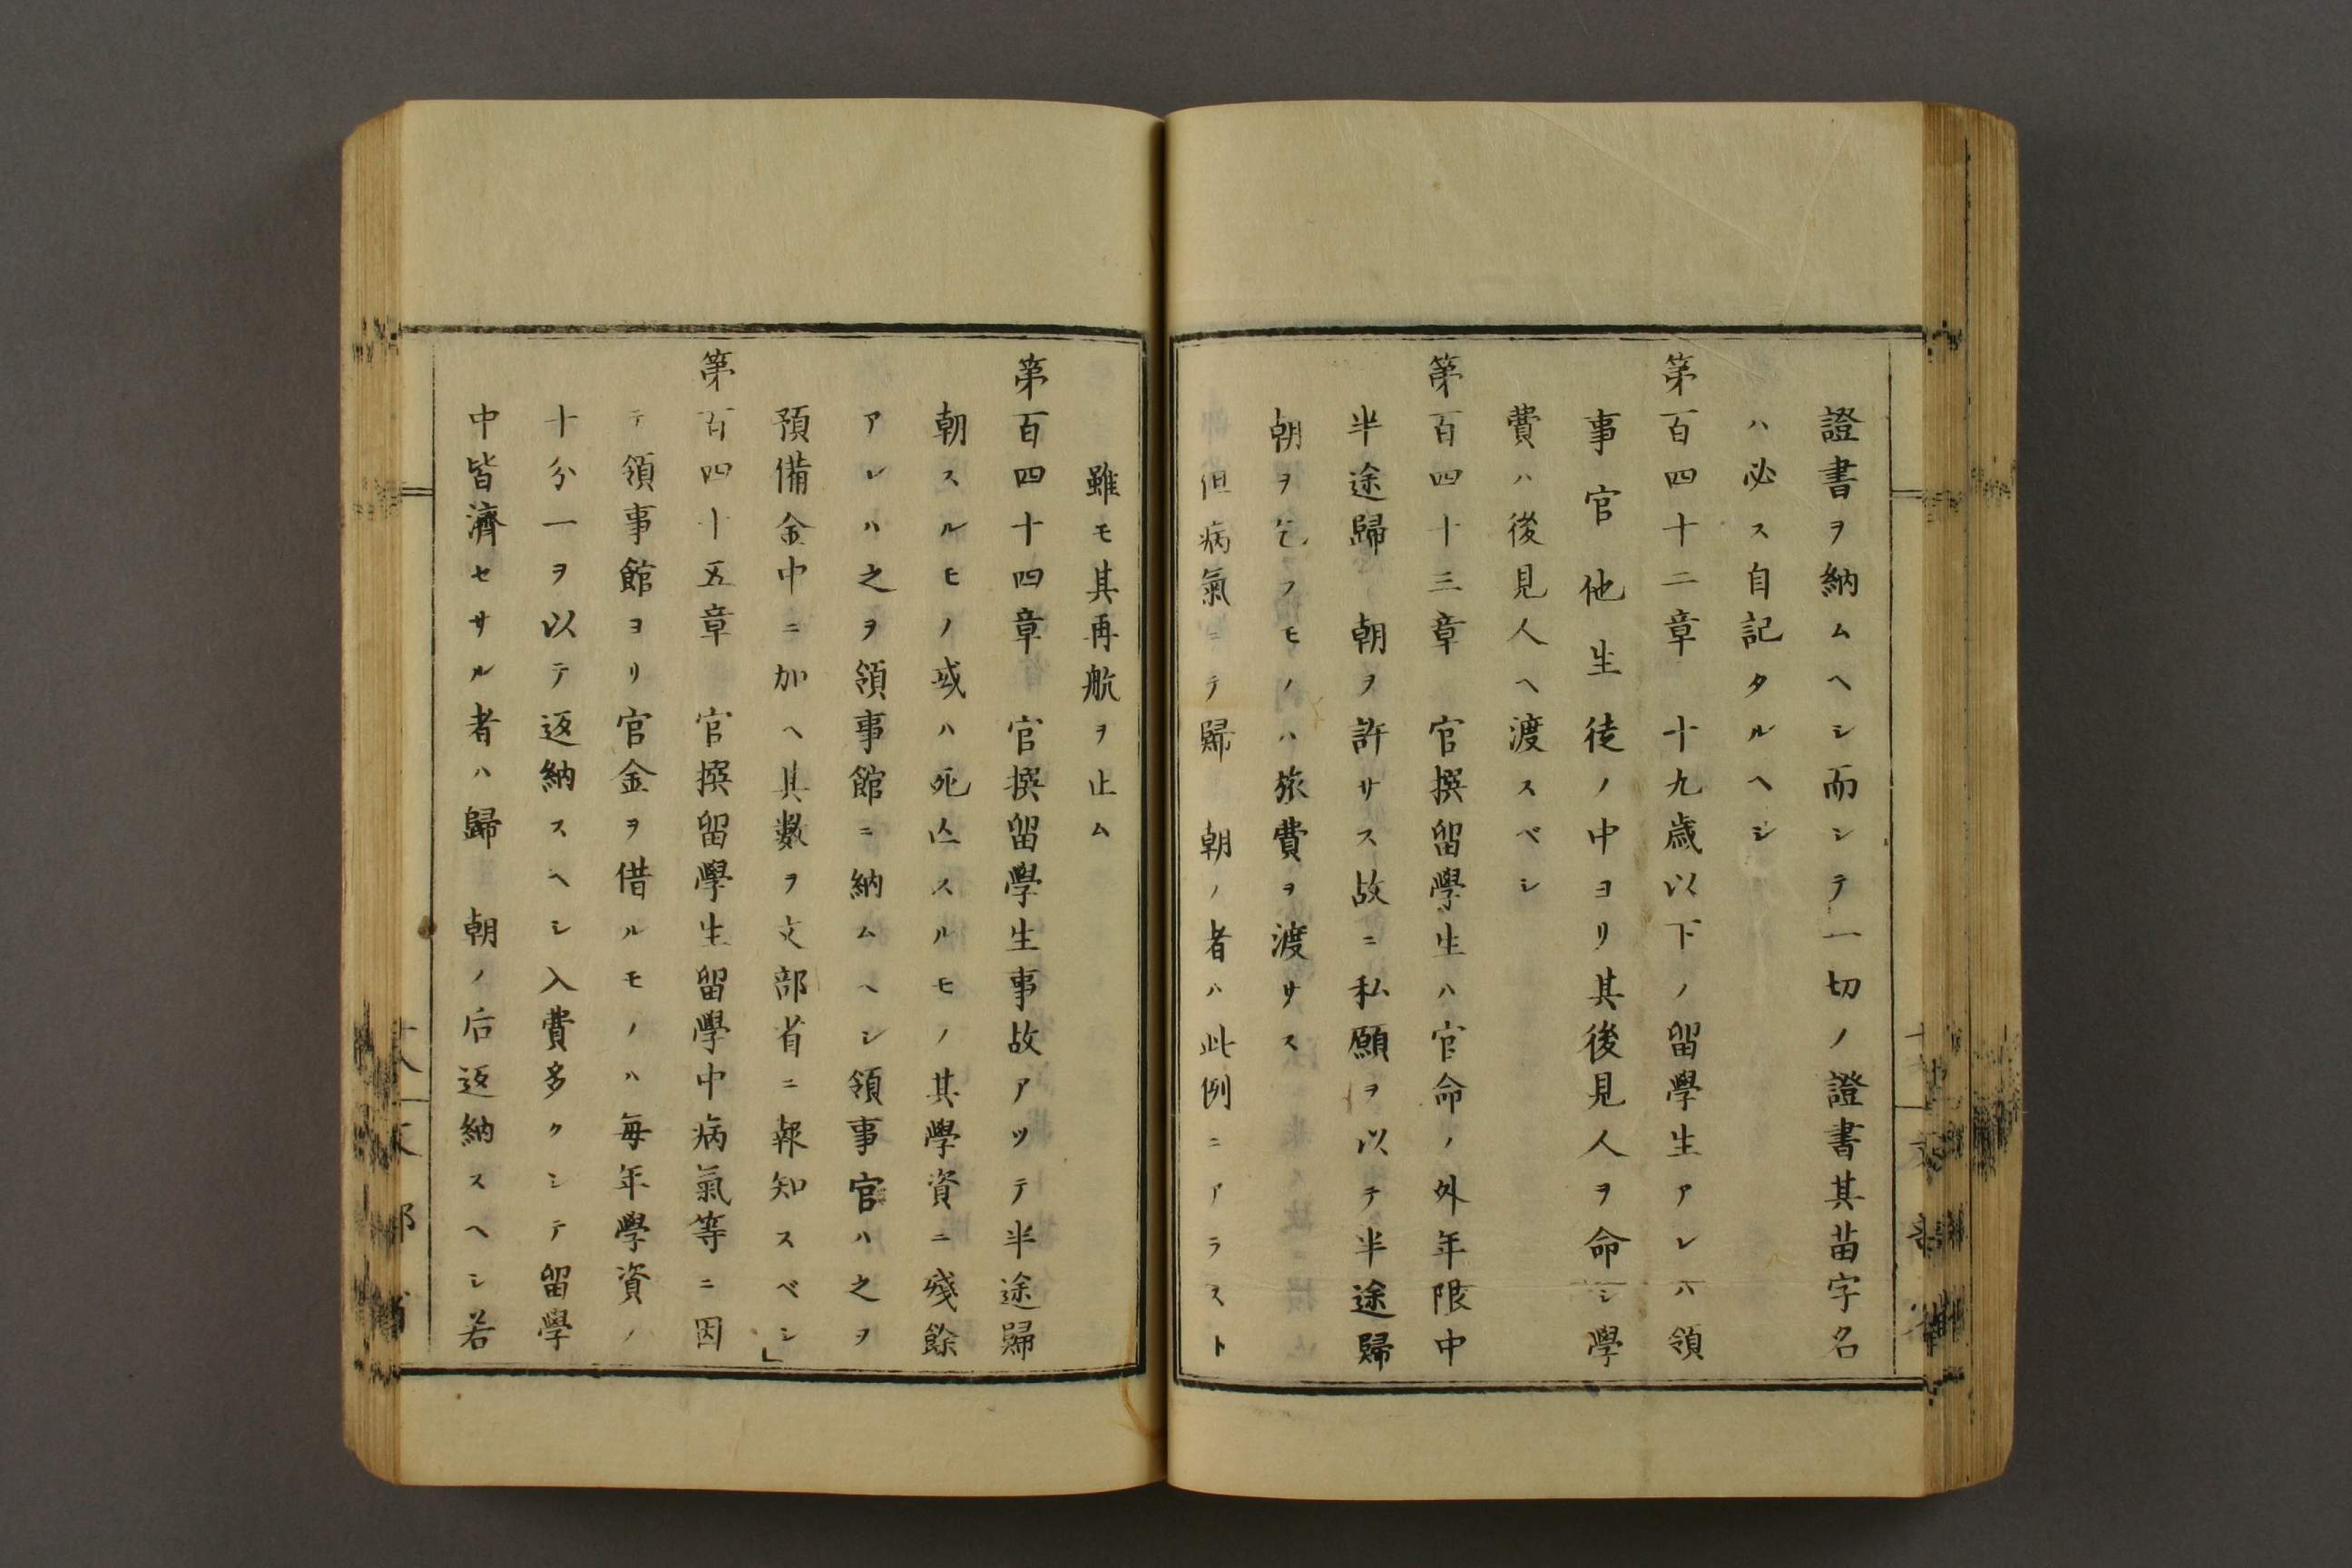 證書ヲ納ムヘシ而シテ一切ノ證書其苗字名
ハ必ス自記タルヘシ
第百四十二章　十九歳以下ノ留學生アレハ領
事官他生徒ノ中ヨリ其後見人ヲ命シ學
費ハ後見人ヘ渡スベシ
第百四十三章　官撰留學生ハ官命ノ外年限中
半途歸　朝ヲ許サス故ニ私願ヲ以テ半途歸
朝ヲ乞フモノハ旅費ヲ渡サス
但病氣ニテ歸　朝ノ者ハ此例ニアラスト
雖モ其再航ヲ止ム
第百四十四章　官撰留學生事故アツテ半途歸
朝スルモノ或ハ死亡スルモノ其學資ニ殘餘
アレハ之ヲ領事館ニ納ムヘシ領事官ハ之ヲ
預備金中ニ加ヘ其數ヲ文部省ニ報知スベシ」
第百四十五章　官撰留學生留學中病氣等ニ因
テ領事館ヨリ官金ヲ借ルモノハ毎年學資ノ
十分一ヲ以テ返納スヘシ入費多クシテ留學
中皆濟セサル者ハ歸　朝ノ后返納スヘシ若